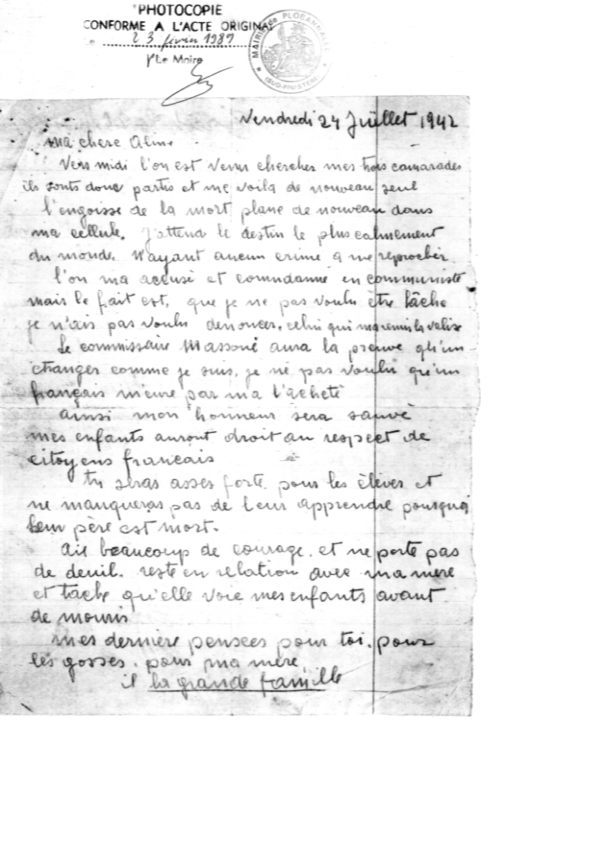 PHOTOCOPIE
CONFORME A L'ACTE ORIGINAL
23 février 1989
Le Maire
MAIRIE de PLOBANNALEC
(SUD-FINISTÈRE)
Vendredi 24 Juillet 1942
ma chere Aline
Vers midi l'on est venu chercher mes trois camarades
ils sonts donc partis et me voila de nouveau seul
l'engoisse de la mort plane de nouveau dans
ma cellule. J'attend le destin le plus calmement
du monde. N'ayant aucun crime a me reprocher
l'on ma accusé et comndanné en communiste
mais le fait est, que je ne pas voulu etre lâche
je n'ais pas voulu denoncer, celui qui ma remis la valise
Le commissaire Massoné aura la preuve qu'un
etranger comme je suis, je ne pas voulu qu'un
français meure par ma l'acheté
ainsi mon honneur sera sauvé
mes enfants auront droit au respect de
citoyens francais
tu seras asses forte pour les élever et
ne manqueras pas de leur apprendre pourquoi
leur père est mort.
aie beaucoup de courage. et ne porte pas
de deuil. reste en relation avec ma mère
et tache qu'elle voie mes enfants avant
de mourir
mes dernière pensées pour toi. pour
les gosses. pour ma mère,
la grande famille